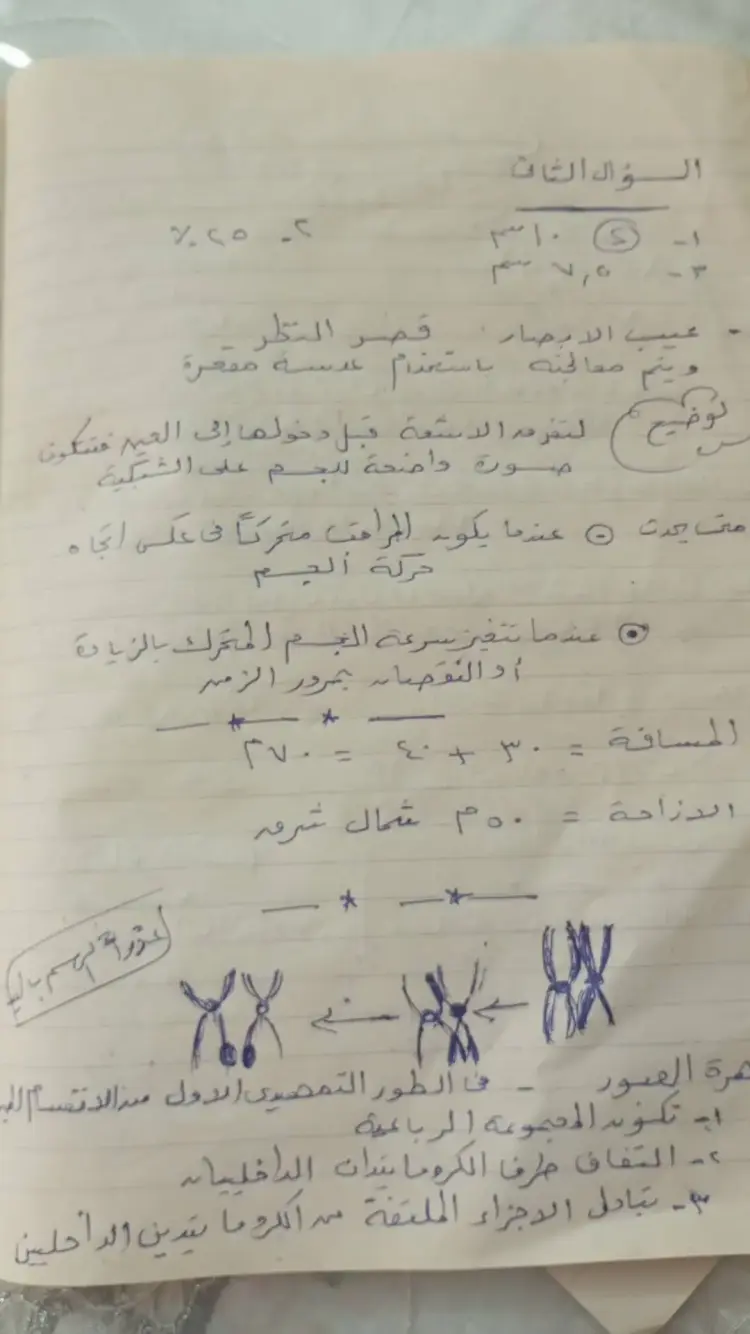 السؤال الثانى
١- (٢) ١٠ سم ٢- ٢٥ ٪
٣- ٧,٥ سم
- عيب الابصار قصر النظر
ويتم معالجته باستخدام عدسة مقعرة
توضيح لتفرق الاشعة قبل دخولها إلى العين فتتكون
صورة واضحة للجسم على الشبكية
متى يحدث - عندما يكون المراقب متحركاً فى عكس اتجاه
حركة الجسم
عندما تتغير سرعة الجسم المتحرك بالزيادة
أو النقصان بمرور الزمن
المسافة = ٣٠ + ٤٠ = ٧٠ م
الازاحة = ٥٠ م شمال شرق
الرسم
هرة العبور - فى الطور التمهيدى الاول من الانقسام
١- تكون المجموعة الرباعية
٢- التفاف طرفا الكروماتيدان الداخليان
٣- تبادل الاجزاء الملتفة من الكروماتيدين الداخليين